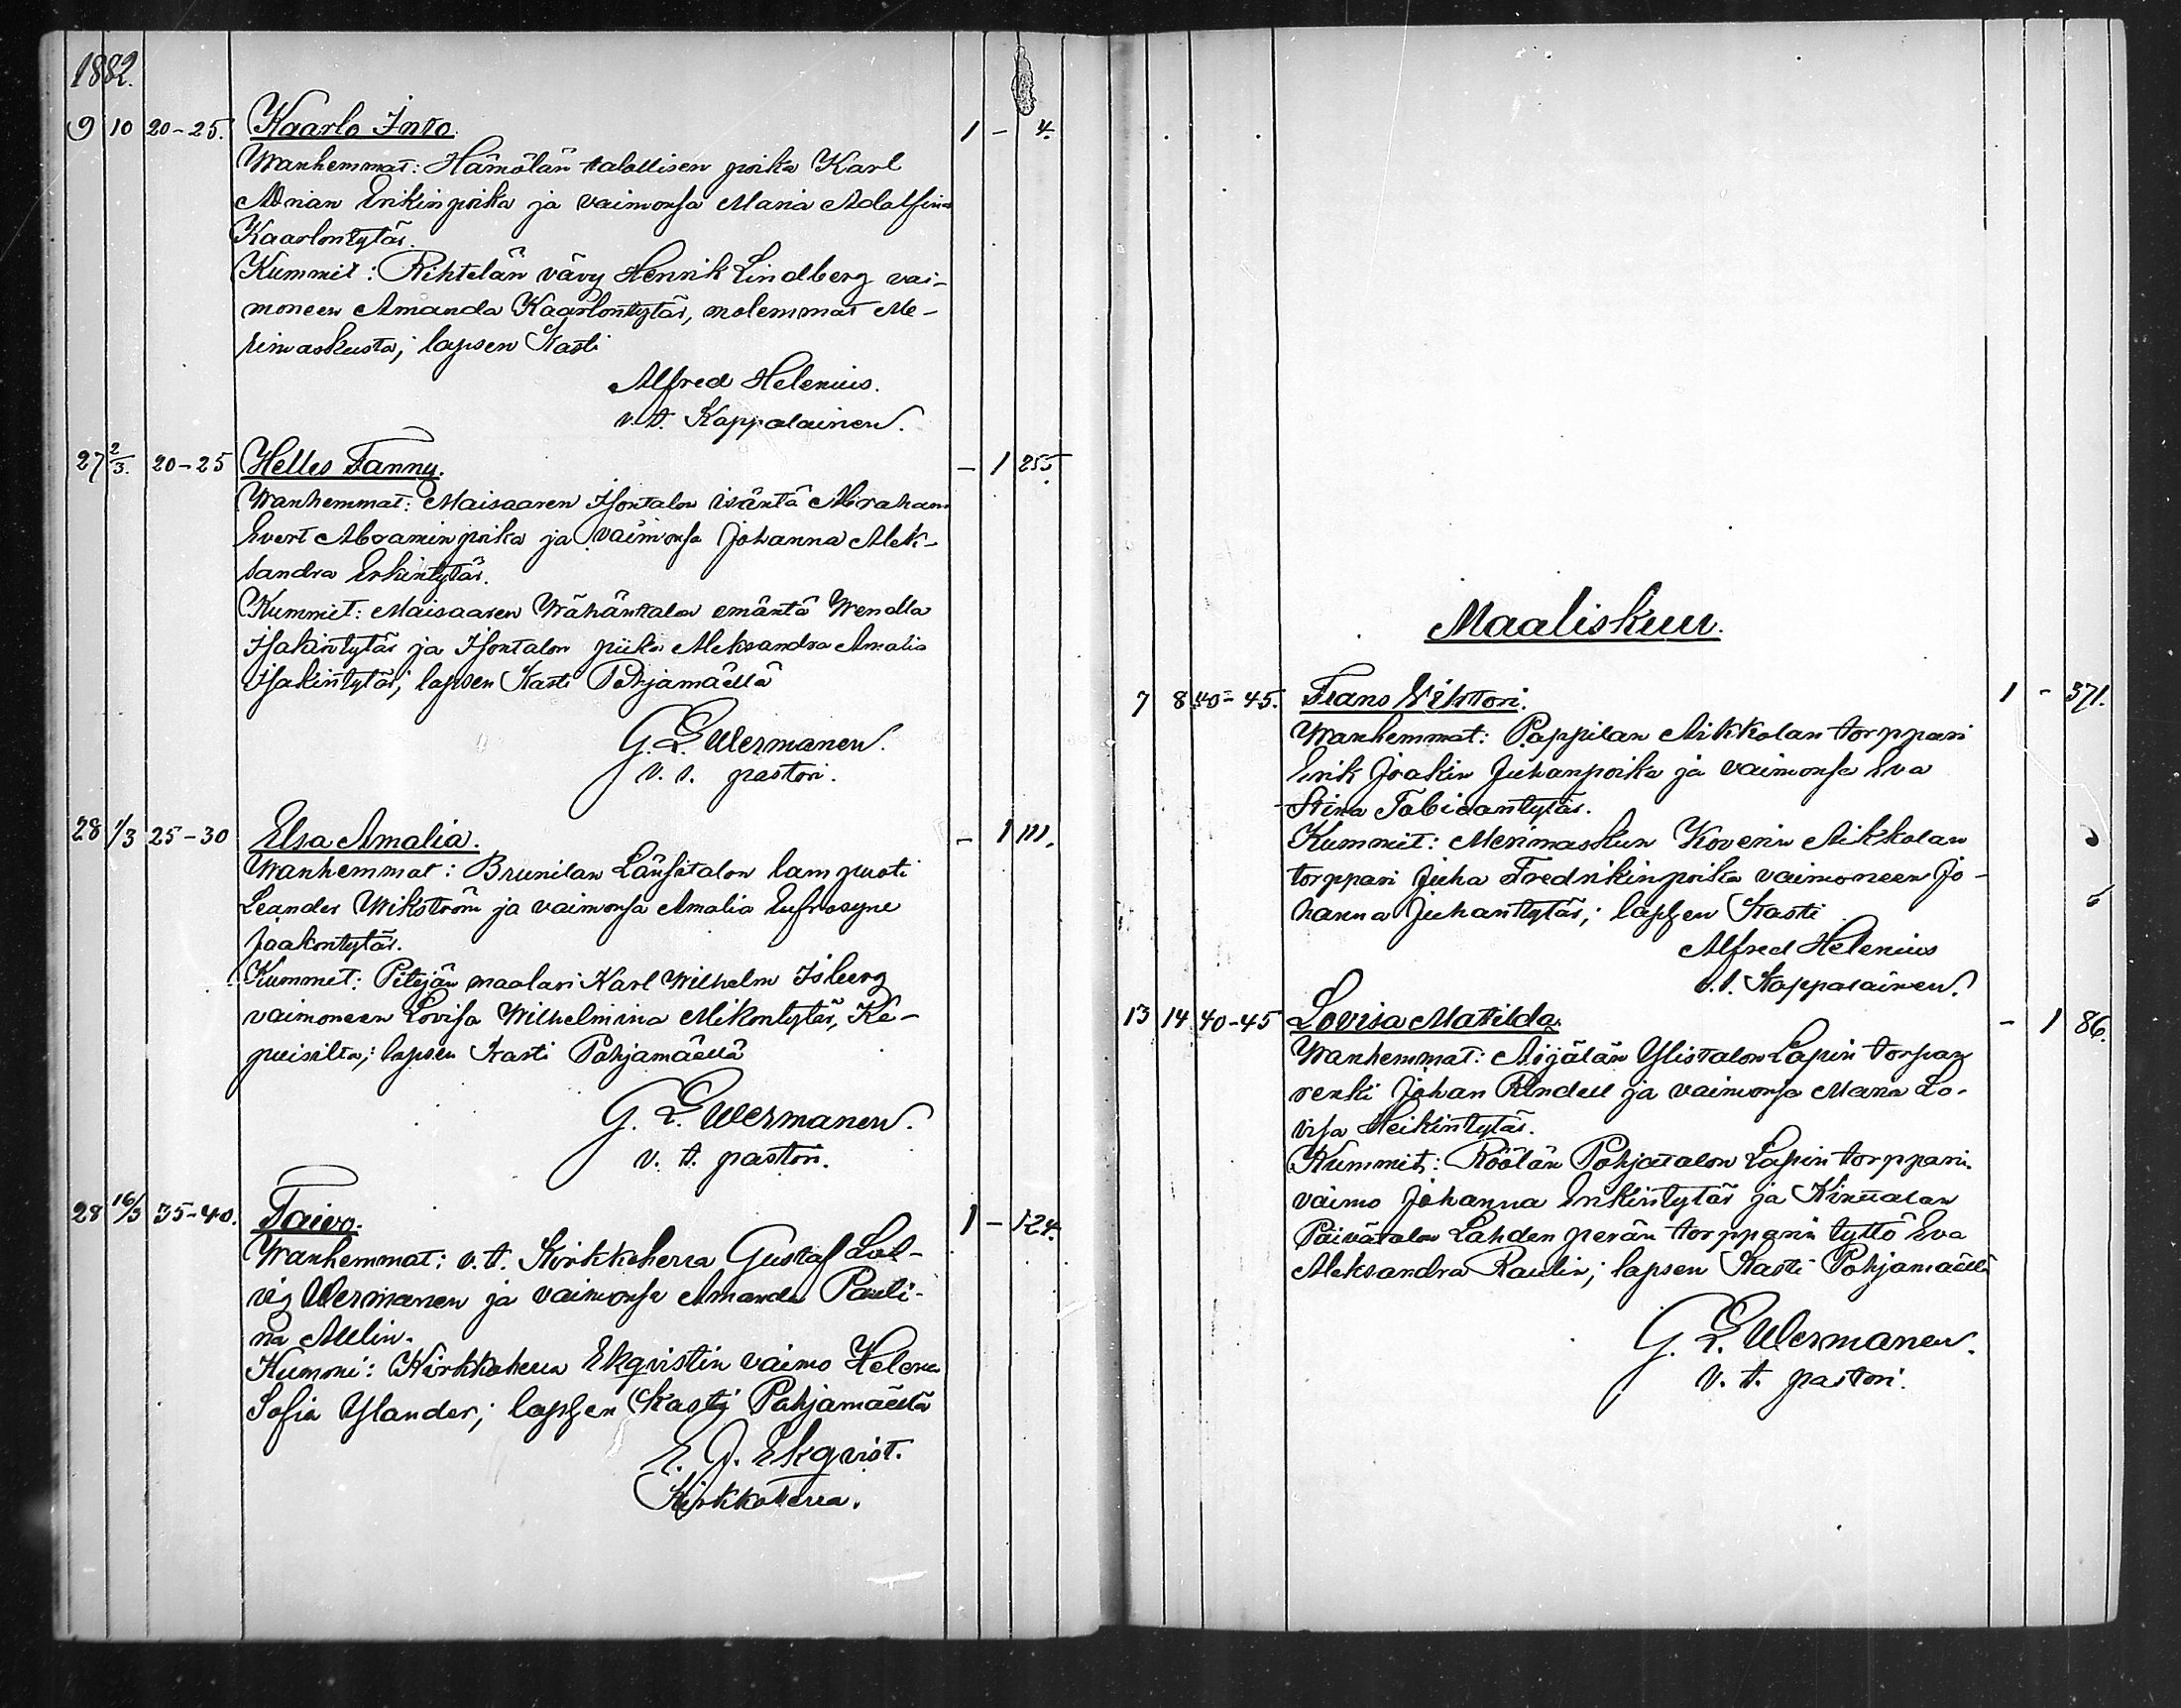 1882.
9 10 20-25. Kaarlo Into. 1 - 4.
Wanhemmat: Hämölän talollisen poika Karl
Adrian Erikinpoika ja vaimonsa Maria Adolfina
Kaarlontytär.
Kummit: Rihtelän vävy Henrik Lindberg vai-
moneen Amanda Kaarlontytär, molemmat Me-
rimaskusta; lapsen kasti
Alfred Helenius.
v.t. Kappalainen.
27 2/3. 20-25 Helles Fanny. - 1 255.
Wanhemmat: Maisaaren Isontalon isäntä Abraham
Evert Abraminpoika ja vaimonsa Johanna Alek-
sandra Erkintytär.
Kummit: Maisaaren Wähäntalon emäntä Wendla
Isakintytär ja Isontalon piika Aleksandra Amalia
Isakintytär; lapsen kasti Pohjamäellä
G. L. Wermanen.
v. t. pastori.
28 1/3 25-30 Elsa Amalia. - 1 111.
Wanhemmat: Brunilan Länsitalon lampuoti
Leander Wikström ja vaimonsa Amalia Eufrosyne
Jaakontytär.
Kummit: Pitäjän maalari Karl Wilhelm Isberg
vaimoneen Lovisa Wilhelmina Mikontytär,
lapsen kasti Pohjamäellä
G. L. Wermanen.
v. t. pastori.
28 16/3 35-40. Taivo. 1 - 124.
Wanhemmat: v. t. Kirkkoherra Gustaf Lud-
vig Wermanen ja vaimonsa Amanda Pauli-
na Mellin.
Kummi: Kirkkoherra Ekqvistin vaimo Helena
Sofia Ylander; lapsen kasti Pohjamäellä
E. J. Ekqvist.
Kirkkoherra.
Maaliskuu.
7 8 40-45. Frans Wihtori. 1 - 371.
Wanhemmat: Pappilan Aikkolan torppari
Erik Joakin Juhanpoika ja vaimonsa Eva
Stina Tobiaantytär.
Kummit: Merimaskun Koverin Aikkolan
torppari Juha Fredrikinpoika vaimoneen Jo-
hanna Juhantytär; lapsen kasti
Alfred Helenius
v.t. Kappalainen.
13 14 40-45 Lovisa Matilda. - 1 86.
Wanhemmat: Äijälän Ylistalon Lapin torpan
renki Johan Rindell ja vaimonsa Maria Lo-
visa Heikintytär.
Kummit: Röölän Pohjatalon Lapin torpparin
vaimo Johanna Erikintytär ja
Päivätalon Lahdenperän torpparin tyttö Eva
Aleksandra Raulin; lapsen kasti Pohjamäellä
G. L. Wermanen.
v. t. pastori.